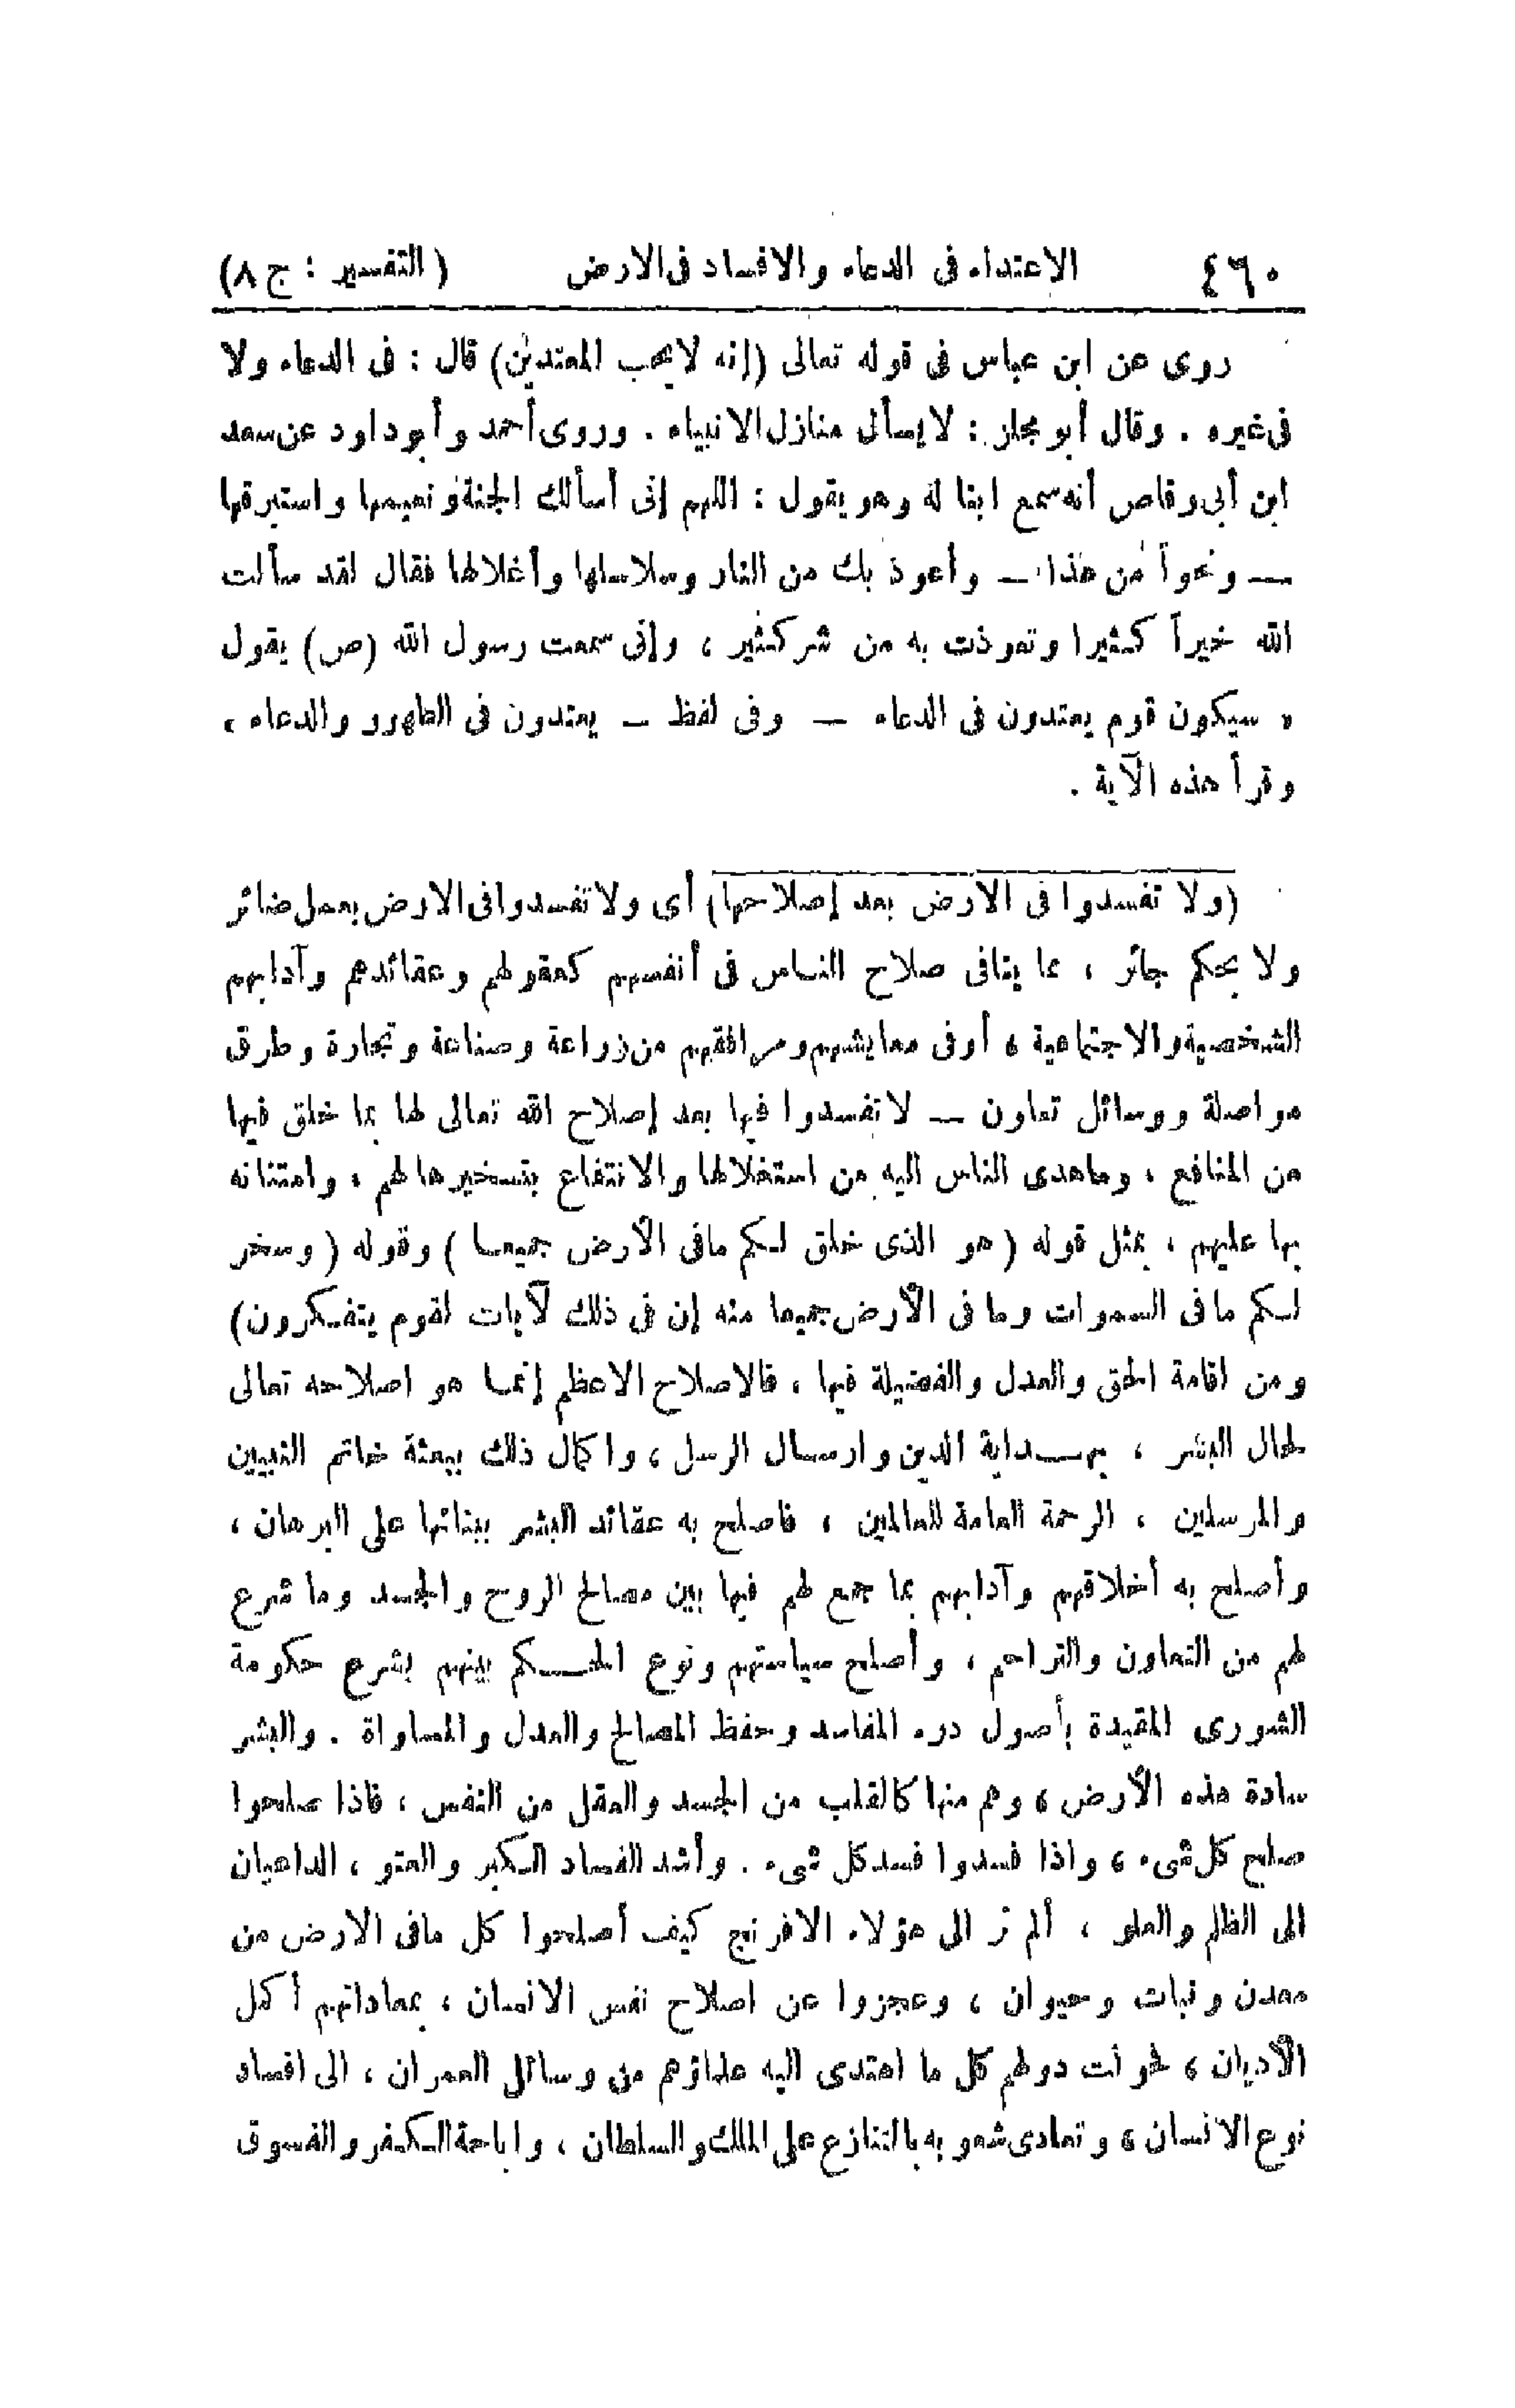 ٤٦٠ الاعتداء فى الدعاء والافساد فى الارض (التفسير : ج ٨)
روى عن ابن عباس فى قوله تعالى (إنه لا يحب المعتدين) قال : فى الدعاء ولا
فى غيره . وقال أبو مجلز : لا يسأل منازل الانبياء . وروى أحمد وأبو داود عن سعد
ابن أبى وقاص أنه سمع ابنا له وهو يقول : اللهم إنى أسألك الجنة ونعيمها واستبرقها
— ونحواً من هذا — وأعوذ بك من النار وسلاسلها وأغلالها فقال لقد سألت
الله خيراً كثيرا وتعوذت به من شر كثير ، وإنى سمعت رسول الله (ص) يقول
« سيكون قوم يعتدون فى الدعاء — وفى لفظ — يعتدون فى الطهور والدعاء »
وقرأ هذه الآية .
(ولا تفسدوا فى الارض بعد إصلاحها) أى ولا تفسدوا فى الارض بعمل ضائر
ولا بحكم جائر ، مما ينافى صلاح الناس فى أنفسهم كعقولهم وعقائدهم وآدابهم
الشخصية والاجتماعية ، أو فى معايشهم ومرافقهم من زراعة وصناعة وتجارة وطرق
مواصلة ووسائل تعاون — لا تفسدوا فيها بعد إصلاح الله تعالى لها بما خلق فيها
من المنافع ، وما هدى الناس اليه من استغلالها والانتفاع بتسخيرها لهم ، وامتنانه
بها عليهم ، بمثل قوله ( هو الذى خلق لكم مافى الأرض جميعا ) وقوله ( وسخر
لكم ما فى السموات وما فى الأرض جميعا منه إن فى ذلك لآيات لقوم يتفكرون)
ومن اقامة الحق والعدل والفضيلة فيها ، فالاصلاح الاعظم إنما هو اصلاحه تعالى
لحال البشر ، بهداية الدين وارسال الرسل ، واكمال ذلك ببعثة خاتم النبيين
والمرسلين ، الرحمة العامة للعالمين ، فاصلح به عقائد البشر ببنائها على البرهان ،
وأصلح به أخلاقهم وآدابهم بما جمع لهم فيها بين مصالح الروح والجسد وما شرع
لهم من التعاون والتراحم ، وأصلح سياستهم ونوع الحكم بينهم بشرع حكومة
الشورى المقيدة بأصول درء المفاسد وحفظ المصالح والعدل والمساواة . والبشر
سادة هذه الأرض ، وهم منها كالقلب من الجسد والعقل من النفس ، فاذا صلحوا
صلح كل شىء ، واذا فسدوا فسد كل شىء . وأشد الفساد الكبر والعتو ، الداعيان
الى الظلم والعلو ، ألم تر الى هؤلاء الافرنج كيف أصلحوا كل مافى الارض من
معدن ونبات وحيوان ، وعجزوا عن اصلاح نفس الانسان ، بمعاداتهم أكمل
الأديان ، فحولت دولهم كل ما اهتدى اليه علماؤهم من وسائل العمران ، الى افساد
نوع الانسان ، وتعادى شعوبه بالتنازع على الملك والسلطان ، واباحة الكفر والفسوق